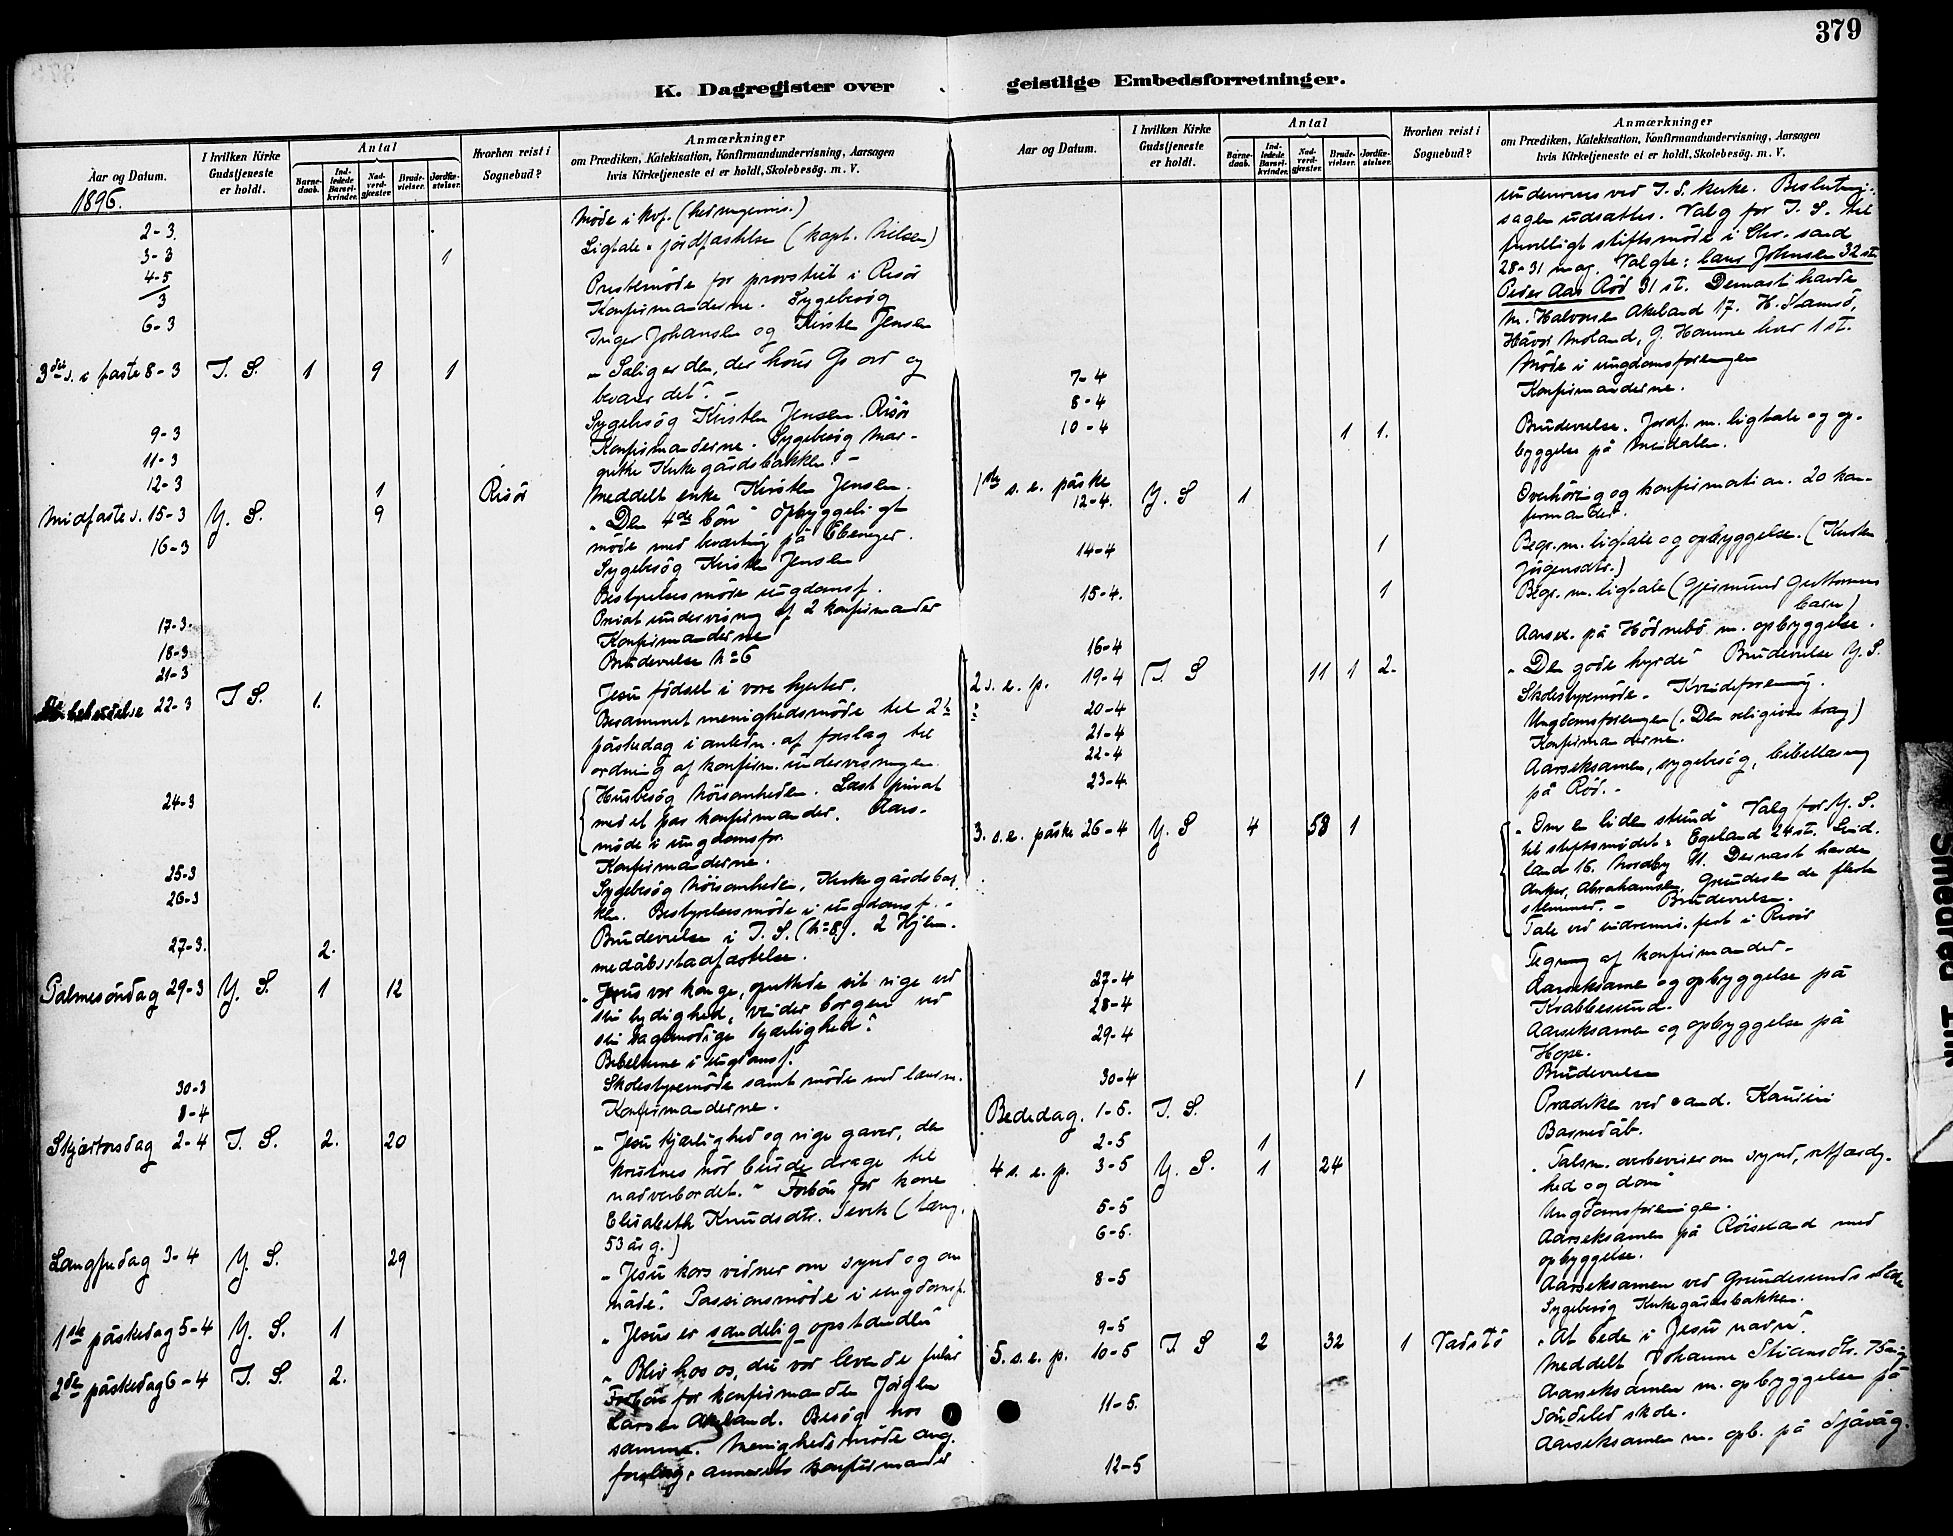 379
K. Dagregister over geistlige Embedsforretninger.
Aar og Datum.
I hvilken Kirke Gudstjeneste er holdt.
Antal
Barnedaab.
Indledede Barselkvinder.
Nadverdgjester.
Brudevielser.
Jordfæstelser.
Hvorhen reist i Sognebud?
Anmærkninger
om Prædiken, Katekisation, Konfirmandundervisning, Aarsagen
hvis Kirketjeneste ei er holdt, Skolebesøg. m. V.
1896.
2-3. Møde i
3-3 1 Ligtale jordfæstelse (kapt. Nielsen)
4-5/3 Prestemøde for provstiet i Risør
Konfirmanderne. Sygebesøg
6-3 Inger Johansen og Kirsten Jensen
3die s. i faste 8-3 I. S. 1 9 1 "Salig er den, der hører Gs ord og
bevarer det". -
9-3 Sygebesøg Kirsten Jensen. Risør
11-3 Konfirmanderne. Sygebesøg Mar-
grethe Kirkegårdsbakken. -
12-3 1 Risør Meddelt enke Kirsten Jensen.
Midfastes. 15-3 Y. S. 9 "Den 4de bøn" Opbyggeligt
møde med beværtning på Ebeneser.
16-3 Sygebesøg Kirsten Jensen
Bestyrelsesmøde ungdomsf.
17-3. Privat undervisning af 2 konfirmander
18-3 Konfirmanderne
21-3 Brudevielse No 6
22-3 I. S. 1. Jesu fødsel i vore hjerter.
Berammet menighedsmøde til 2den
påskedag i anledn. af forslag til
ordning af konfirm. undervisningen
24-3 Husbesøg Nøisomheden. Læst privat
med et par konfirmander. Aars-
møde i ungdomsfor.
25-3 Konfirmanderne.
26-3 Sygebesøg Nøisomheden, Kirkegårdsbak-
ken. Bestyrelsesmøde i ungdomsf. -
27-3. 2. Brudevielse i I. S. (No 8). 2 Hjem-
medåbsstadfæstelse.
Palmesøndag 29-3 Y. S. 1 12 "Jesus vor konge, oprettede sit rige ved
sin lydighed, vinder borgere ved
sin sagtmodige kjærlighed".
Bibeltime i ungdomsf.
30-3 Skolestyremøde samt møde med lærern.
8-4 Konfirmanderne.
Skjærtorsdag 2-4 I. S. 2. 20 "Jesu kjærlighed og rige gaver, de
kristnes nød burde drage til
nadverbordet." Forbøn for kone
Elisabeth Knudsdtr. (
53 år g.)
Langfredag 3-4 Y. S. 29 "Jesu kors vidner om synd og om
nåde". Passionsmøde i ungdomsf.
1ste påskedag 5-4 Y. S. 1 "Jesus er sandelig opstanden"
2den påskedag 6-4 I. S. 2. "Bliv hos os, du vor levende frelser
Forbøn for konfirmanden Jørgen
Larsen Akeland. Besøg hos
samme. Menighedsmøde ang.
forslag, annexets konfirmander
Aar og Datum.
I hvilken Kirke Gudstjeneste er holdt.
Antal
Barnedaab.
Indledede Barselkvinder.
Nadverdgjester.
Brudevielser.
Jordfæstelser.
Hvorhen reist i Sognebud?
Anmærkninger
om Prædiken, Katekisation, Konfirmandundervisning, Aarsagen
hvis Kirketjeneste ei er holdt, Skolebesøg. m. V.
undervises ved I. S. kirke. Beslutning.
sagen udsattes. Valg for I. S. til
frivilligt stiftsmøde i Chr.sand
28-31 mag. Valgte: Lars Johnsen 32 st.
Peder Aas Rød 31 st. Dernæst havde
M. Halvorsen Akeland 17. H. Stamsø,
Håvor Moland, G. Homme hver 1 st.
7-4 Møde i ungdomsforeningen
8-4 Konfirmanderne.
10-4 1 1. Brudevielse. Jordf. m. ligtale og op-
byggelse på Meidalen.
1ste s. e. påske 12-4. Y. S 1 Overhøring og konfirmation. 20 kon-
firmander.
14-4 1 Begr. m. ligtale og opbyggelse. (Kirsten
Jørgensdtr.)
15-4. 1 Begr. m. ligtale (Gjermund Guttormsens
barn)
16-4 Aarsex. på Hødnebø m. opbyggelse.
2 s. e. p. 19-4 I. S 11 1 2. "Den gode hyrde" Brudevielse Y. S.
20-4 Skolestyremøde. Kvindeforening.
21-4 Ungdomsforeningen ("Den religiøse trang)
22-4 Konfirmanderne.
23-4 Aarseksamen, sygebesøg, bibellæsning
på Rød. -
3. s. e. påske 26-4 Y. S 4 58 1 "Om en liden stund" Valg for Y. S.
til stiftsmødet: Egeland 24 st. Lind-
land 16. Nordby 11. Dernæst havde
Anker, Abrahamsen, Grundesen de fleste
stemmer. - Brudevielse.
Tale ved indremis. fest i Risør
27-4 Tegning af konfirmander -
28-4 Aarseksamen og opbyggelse på
Krabbesund.
29-4 Aarseksamen og opbyggelse på
Hope.
30-4 1 Brudevielse
Bededag. 1-5. I. S. Prædiken ved cand.
2-5 1 Barnedåb.
4 s. e. p. 3-5 Y. S. 1 24 "Talsm. overbeviser om synd, retfærdig-
hed og dom"
5-5 Ungdomsforeningen.
6-5. Aarseksamen på Røiseland med
opbyggelse.
8-5 Aarseksamen ved Grundesunds skole
9-5 Sygebesøg Kirkegårdsbakken.
5. s. e. p. 10-5 I. S 2 32 1 Vadstø "At bede i Jesu navn".
Meddelt Johanne Stiansdtr. 75 år g.
11-5. Aarseksamen m. opbyggelse på
Søndeled skole.
12-5 Aarseksamen m. opb. på Sjåvåg.